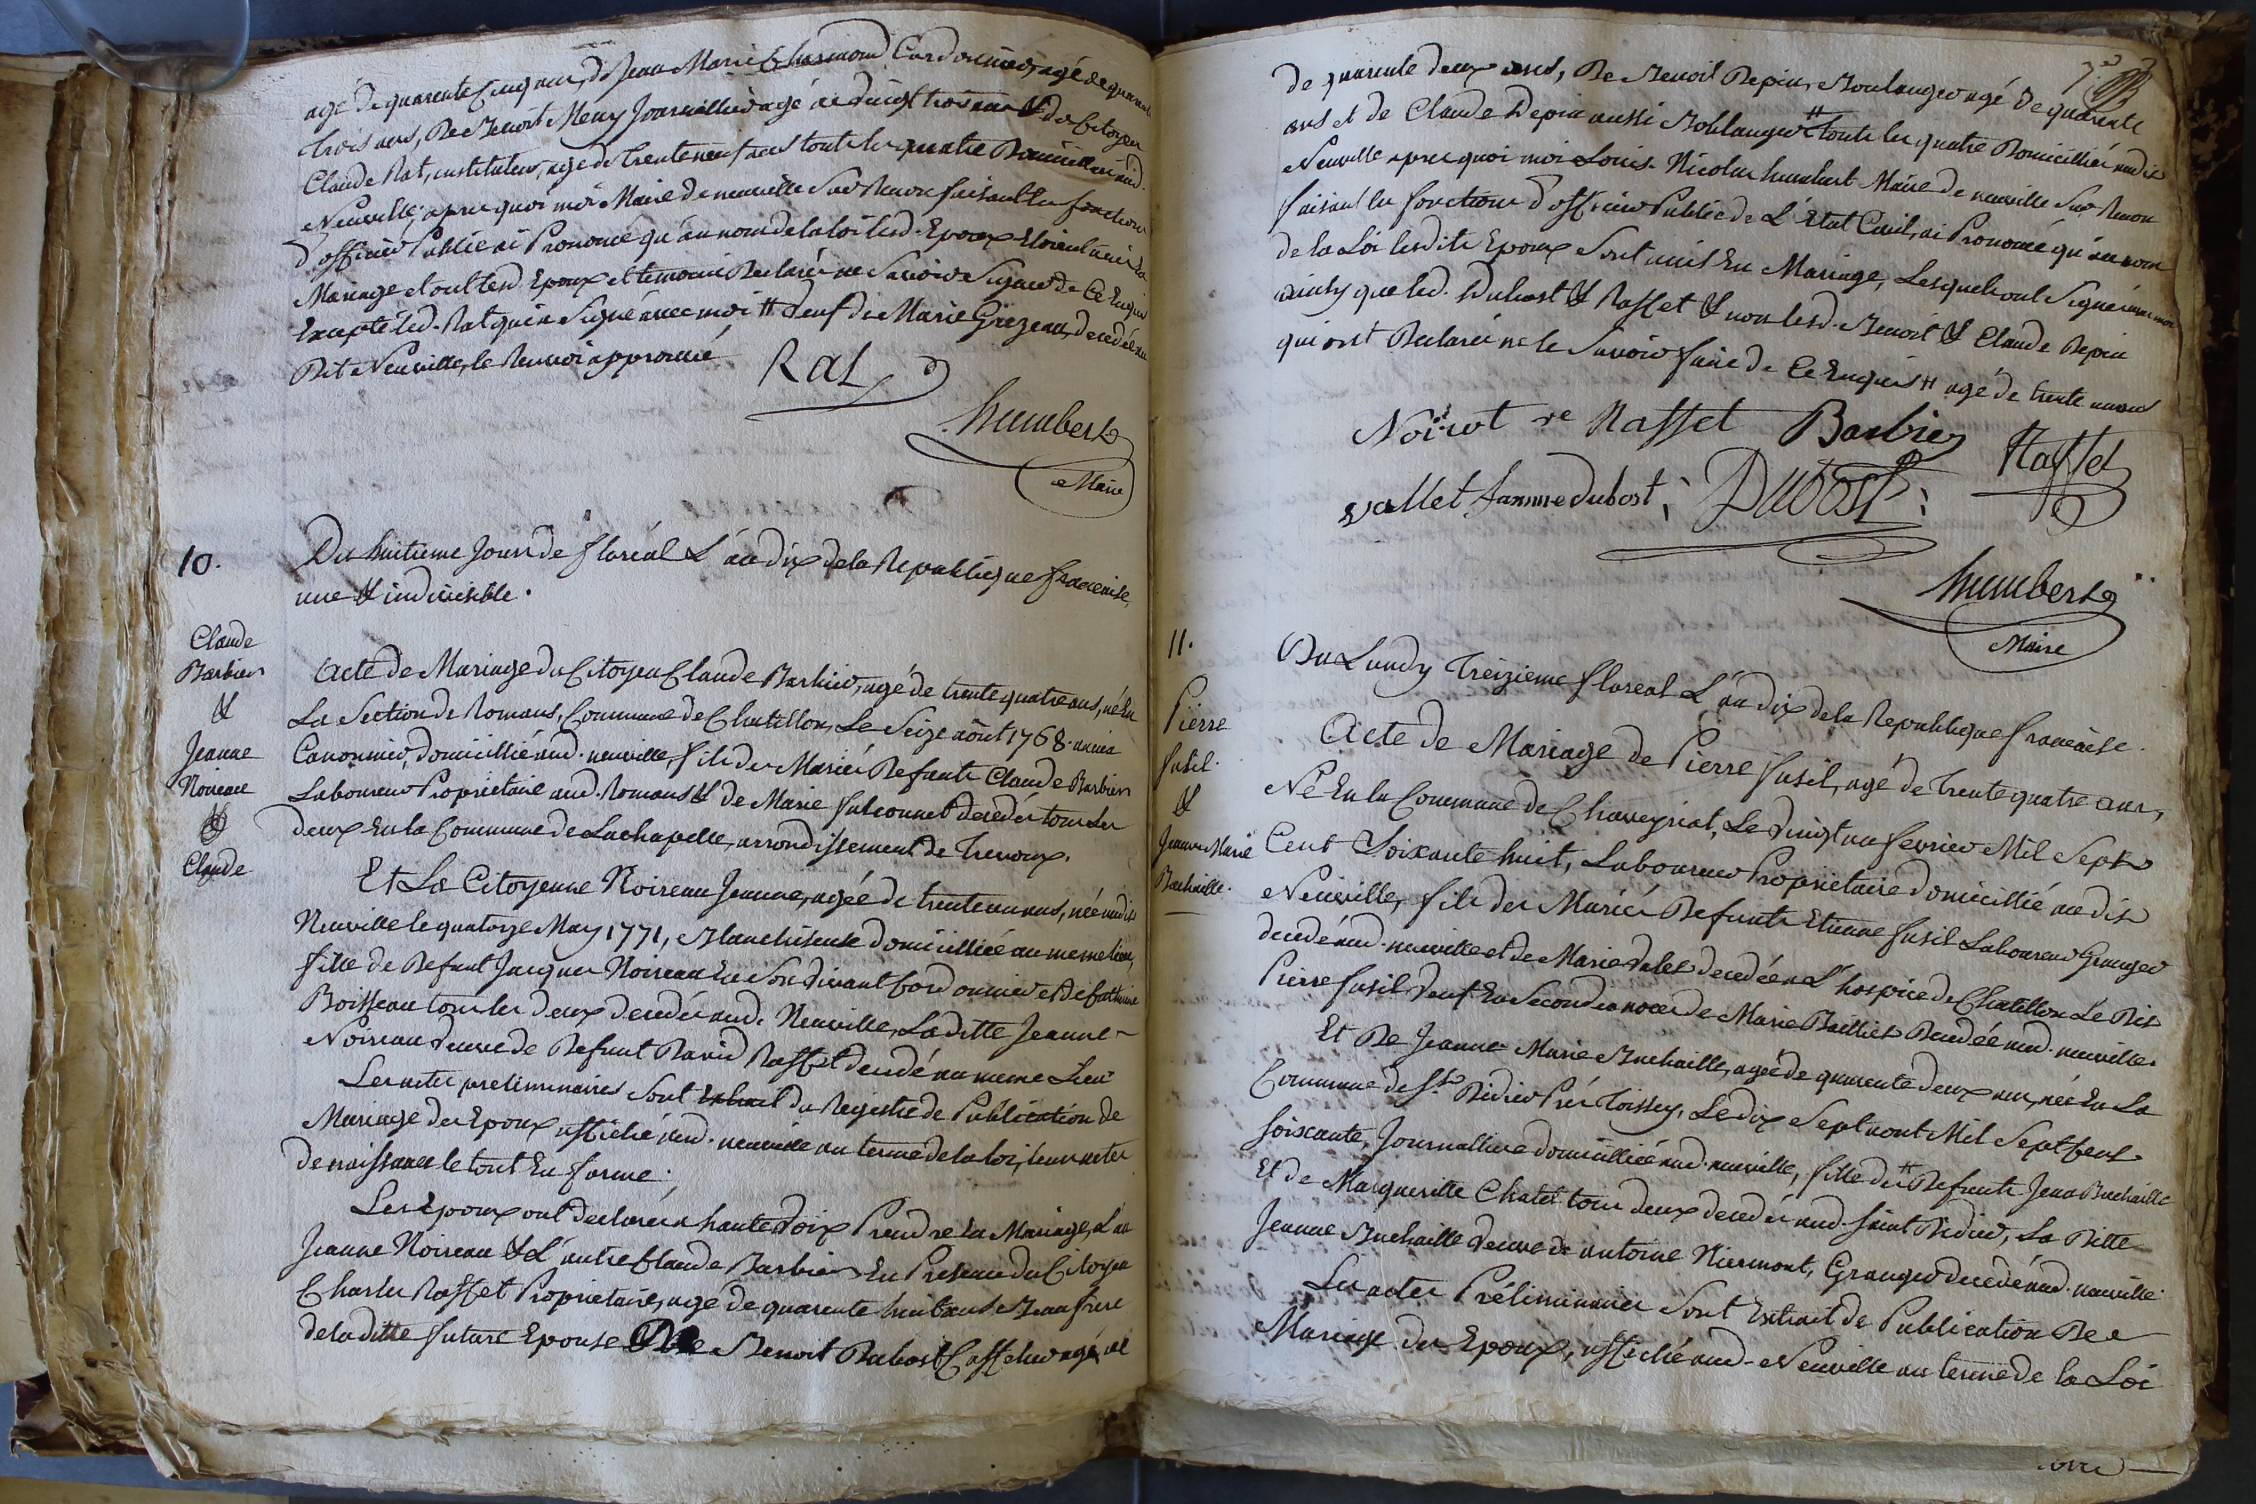 agé de quarente Cinq ans, de Jean Marie Charmond Cordonnier, agé de quarente
trois ans, De Benoit Meny Journallier agé de vingt trois ans & du Citoyen
Claude Rat, instituteur, agé de trente neuf ans tous les quatre Domicilliés aud.
Neuville; apres quoi moi Maire de neuville Sur Renon faisant les fonctions
d'officier Public ai Prononcé qu'au nom de la loi lesd. Epoux Etoient unis En
Mariage et ont lesd Epoux et temoins Declarés ne Savoir Signer de Ce Enquis
Excepté led. Rat qui a Signé avec moi # Veuf de Marie Grezeau, decedée au
Dit Neuville, le Renvoi approuvé
Rat
humbert
Maire
10.
Du huitieme Jour de floréal L'an dix de la Republique francaise,
une & indivisible.
Claude
Barbier
&
Jeanne
Noireau
&
Claude
Acte de Mariage du Citoyen Claude Barbier, agé de trente quatre ans, né En
La Section de Romans, Commune de Chatillon, Le Seize août 1768. ancien
Canonnier, domicillié aud. neuville, fils des Mariés Defunts Claude Barbier
Laboureur Proprietaire aud. Romans & de Marie falconnet decedés tous les
deux En la Commune de Lachapelle, arrondissement de Trevoux.
Et La Citoyenne Noireau Jeanne, agée de trente un ans, née audit
Neuville le quatorze May 1771, Blanchisseuse domicilliée au meme lieu,
fille de Defunt Jacques Noireau En Son vivant Cordonnier et de Catherine
Boisseau tous les deux decedés aud. Neuville, La ditte Jeanne
Noireau Veuve de Defunt David Raffet decedé au meme Lieu
Les actes preliminaires Sont Extrait du Registre de Publication de
Mariage des Epoux affiché aud. neuville au terme de la loi, leurs actes
de naissance le tout En forme.
Les Epoux ont declarés a haute voix Prendre En Mariage, L'un
Jeanne Noireau & L'autre Claude Barbier En Presence du Citoyen
Charles Raffet Proprietaire, agé de quarente huit ans Beaufrere
de la ditte future Epouse De Benoit Dubost Caffetier agé de
de quarente deux ans, De Benoit Depin, Boulanger agé de quarente
ans et de Claude Depin aussi Boulanger # tous les quatre Domicilliés audit
Neuville apres quoi moi Louis Nicolas humbert Maire de neuville Sur Renon
faisant les fonctions d'officier Public de L'Etat Civil, ai Prononcé qu'au nom
de la Loi lesdits Epoux Sont unis En Mariage, Lesquels ont Signé avec moi
ainsy que led. Dubost & Raffet & non lesd. Benoit & Claude Depin
qui ont Declarés ne le Savoir faire de Ce Enquis # agé de trente un ans
Noirot ve Raffet Barbier Raffet
vallet famme dubost; Dubost;
humbert
Maire
11.
Du Lundy Treizieme floreal L'an dix de la Republique francaise.
Pierre
fusil.
&
Jeanne Marie
Buchaille.
Acte de Mariage de Pierre fusil, agé de Trente quatre ans,
Né En la Commune de Chaveyriat, Le vingt un fevrier Mil Sept
Cent Soixante huit, Laboureur Proprietaire domicillié audit
Neuville, fils des Mariés Defunts Etienne fusil Laboureur Granger
decedé aud. neuville et de Marie valet decedée a L'hospice de Chatillon Le Dit
Pierre fusil Veuf En Secondes noces de Marie Baillet Decedée aud. neuville.
Et De Jeanne Marie Buchaille, agée de quarente deux ans, née En La
Commune de St. Didier Près Toissey, Le dix Sept aout Mil Sept Cent
Soixante, Journalliere domicilliée aud. neuville, fille des # Defunts Jean Buchaille
Et de Marguerite Chatel tous deux decedés aud. Saint Didier, La Ditte
Jeanne Buchaille Veuve de antoine Niermont, Granger decedé aud. neuville.
Les actes Préliminaires Sont Extrait de Publication De
Mariage des Epoux, affiché aud. Neuville au terme de la Loi